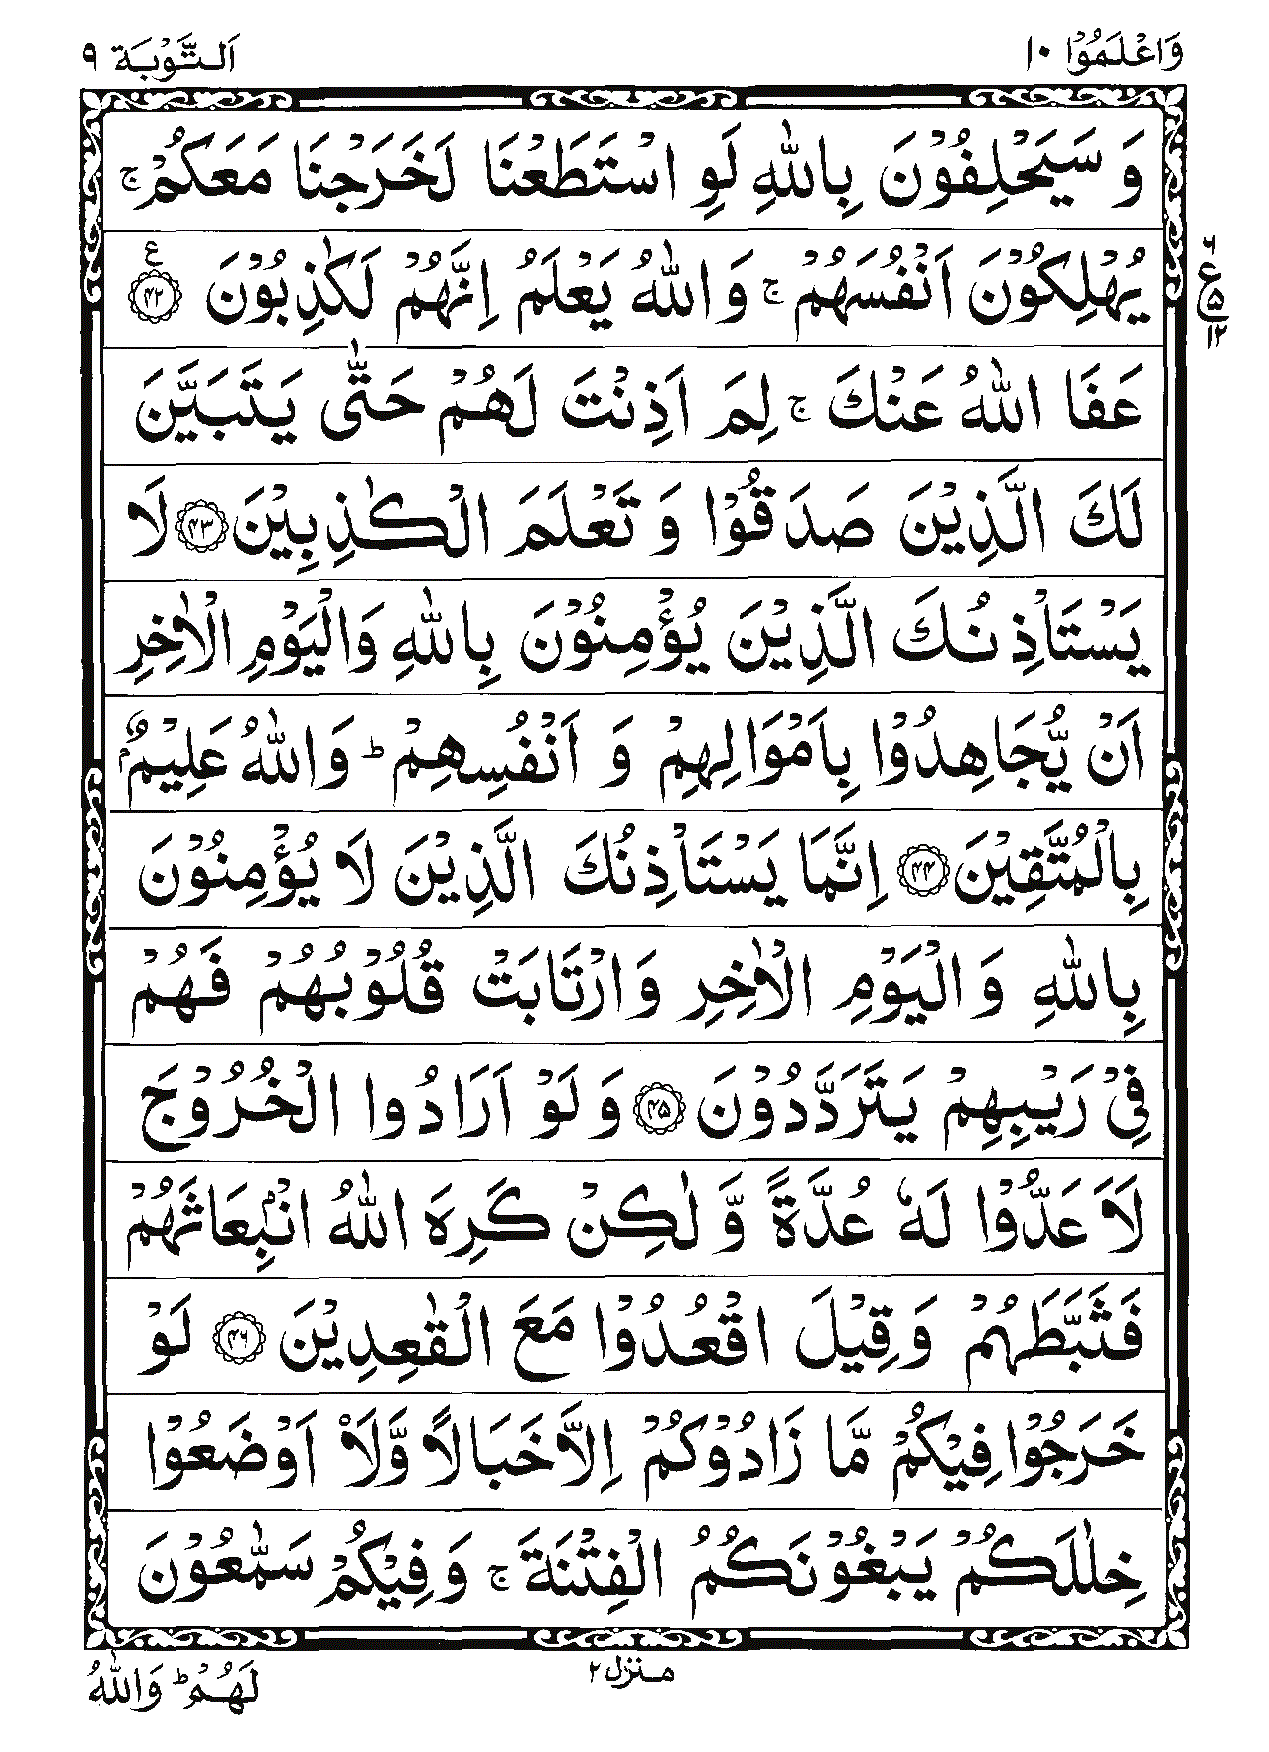 وَاعْلَمُوْۤا ١٠
اَلتَّوْبَة ٩
وَ سَيَحْلِفُوْنَ بِاللّٰهِ لَوِ اسْتَطَعْنَا لَخَرَجْنَا مَعَكُمْ ۚ
يُهْلِكُوْنَ اَنْفُسَهُمْ ۚ وَ اللّٰهُ يَعْلَمُ اِنَّهُمْ لَكٰذِبُوْنَ ﴿۴۲﴾ ع
۶ ع ۵ ۱۲
عَفَا اللّٰهُ عَنْكَ ۚ لِمَ اَذِنْتَ لَهُمْ حَتّٰى يَتَبَيَّنَ
لَكَ الَّذِيْنَ صَدَقُوْا وَ تَعْلَمَ الْكٰذِبِيْنَ ﴿۴۳﴾ لَا
يَسْتَاْذِنُكَ الَّذِيْنَ يُؤْمِنُوْنَ بِاللّٰهِ وَالْيَوْمِ الْاٰخِرِ
اَنْ يُّجَاهِدُوْا بِاَمْوَالِهِمْ وَ اَنْفُسِهِمْ ؕ وَاللّٰهُ عَلِيْمٌۢ
بِالْمُتَّقِيْنَ ﴿۴۴﴾ اِنَّمَا يَسْتَاْذِنُكَ الَّذِيْنَ لَا يُؤْمِنُوْنَ
بِاللّٰهِ وَ الْيَوْمِ الْاٰخِرِ وَارْتَابَتْ قُلُوْبُهُمْ فَهُمْ
فِيْ رَيْبِهِمْ يَتَرَدَّدُوْنَ ﴿۴۵﴾ وَ لَوْ اَرَادُوا الْخُرُوْجَ
لَاَعَدُّوْا لَهٗ عُدَّةً وَّ لٰكِنْ كَرِهَ اللّٰهُ انْۢبِعَاثَهُمْ
فَثَبَّطَهُمْ وَقِيْلَ اقْعُدُوْا مَعَ الْقٰعِدِيْنَ ﴿۴۶﴾ لَوْ
خَرَجُوْا فِيْكُمْ مَّا زَادُوْكُمْ اِلَّا خَبَالًا وَّلَا۟اَوْضَعُوْا
خِلٰلَكُمْ يَبْغُوْنَكُمُ الْفِتْنَةَ ۚ وَ فِيْكُمْ سَمّٰعُوْنَ
منزل ٢
لَهُمْ ؕ وَاللّٰهُ